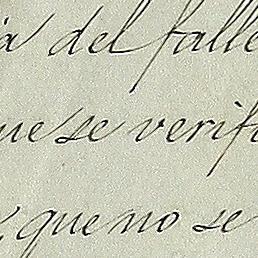 a del falle
ue se verif
que no se